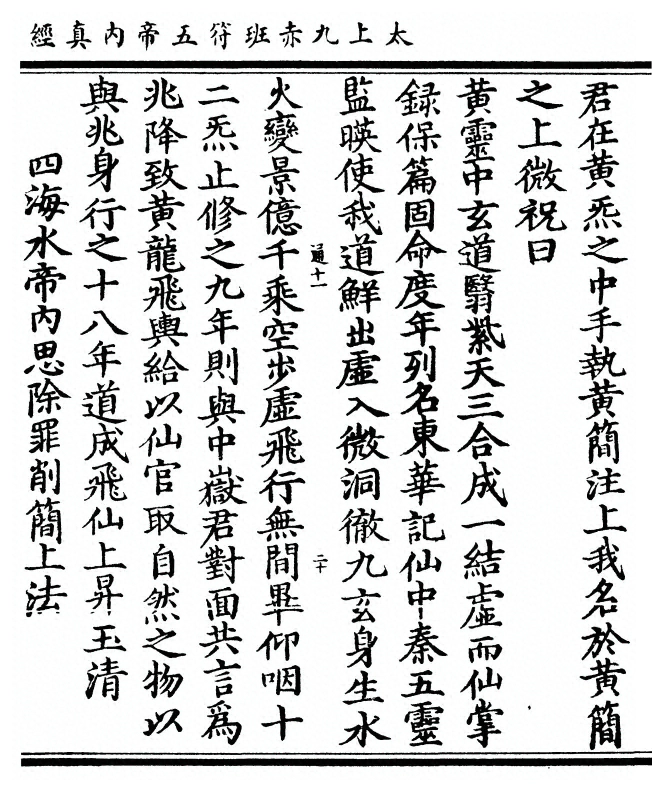 太上九赤班符五帝內真經
君在黃炁之中手執黃簡注上我名於黃簡
之上微祝曰
黃靈中玄道翳紫天三合成一結虛而仙掌
録保篇固命度年列名東華記仙中秦五靈
監暎使我道鮮出虛入微洞徹九玄身生水
通十一
二十
火變景億千乘空步虛飛行無間畢仰咽十
二炁止修之九年則與中嶽君對面共言爲
兆降致黃龍飛輿給以仙官取自然之物以
與兆身行之十八年道成飛仙上昇玉清
四海水帝內思除罪削簡上法